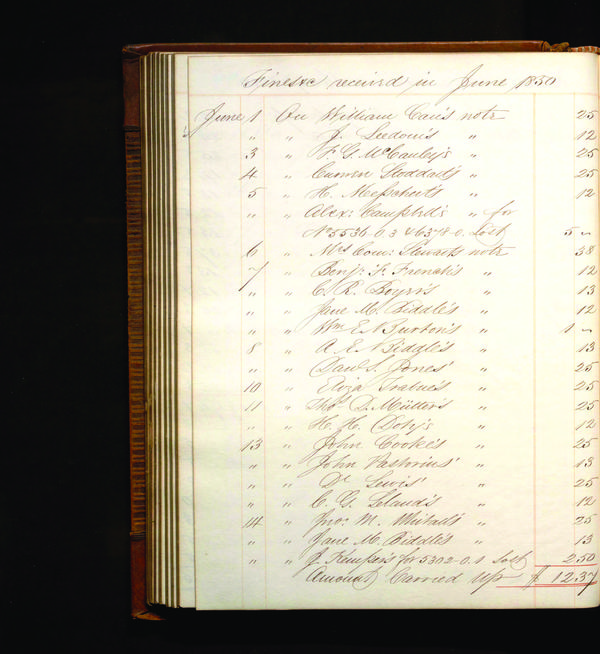 Fines &c receivd in June 1850
June 1 On William Carr's note 25
" " J. Leedom's " 12
3 " F. G. McCauley's " 25
4 " Curwen Stoddart's " 25
5 " H. " 12
" " Alex: Campbell's " for
No 5536 0.3 & 6378-0. Lost 5 "
6 " Mrs Com: Stewarts note 38
7 " Benj: F. French's " 12
" " C. R. " 13
" " Jane M. Biddle's " 12
" " Wm E. Burton's " 1 "
8 " A. E. Biddle's " 13
" " Danl S. Jones' " 25
10 " Eliza " 25
11 " Thos D. Mütter's " 25
" " H. H. Doty's " 12
13 " John Cooke's " 25
" " John Pastorius' " 13
" " Dr Lewis' " 25
" " C. G. Leland's " 12
14 " Jno: M. Whitall's " 25
" " Jane M. Biddle's " 13
" " J. Kemper's for 5302-0.1 Lost 2.50
Amount Carried Up $ 12.37